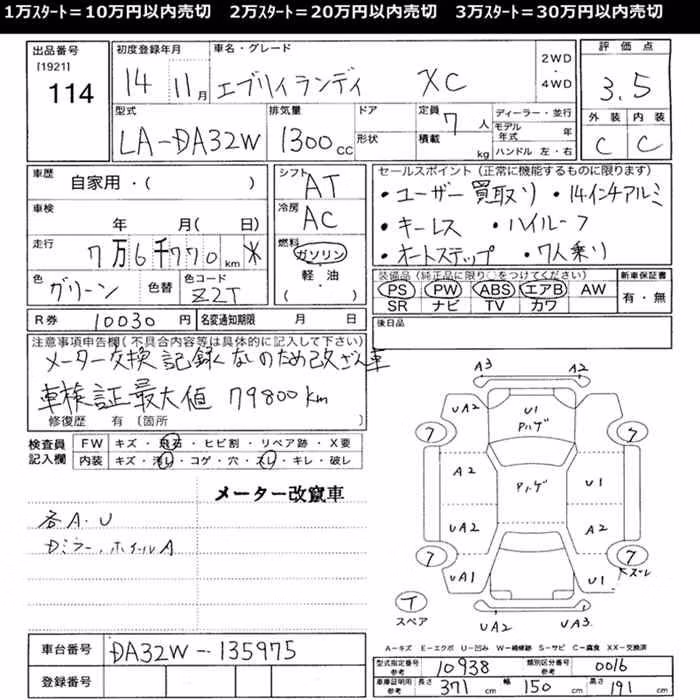 1万ｽﾀｰﾄ＝10万円以内売切　2万ｽﾀｰﾄ＝20万円以内売切　3万ｽﾀｰﾄ＝30万円以内売切
出品番号
[1921]
114
初度登録年月
14 11月
車名・グレード
エブリィランディ XC
2WD
・
4WD
評価点
3.5
外装 内装
C C
型式
LA-DA32W
排気量
1300cc
ドア
形状
定員 7人
積載 kg
ディーラー・並行
モデル年式 年
ハンドル 左・右
車歴
自家用・( )
車検
年 月( 日)
走行
7万6千770km *
色
グリーン
色替
色コード
Z2T
シフト
AT
冷房
AC
燃料
ガソリン
・
軽・油
( )
セールスポイント（正常に機能するものに限ります）
・ユーザー買取り ・14インチアルミ
・キーレス ・ハイルーフ
・オートステップ ・7人乗り
装備品（純正品に限り○をつけてください）
PS PW ABS エアB AW
SR ナビ TV カワ
新車保証書
有・無
R券 10030円
名変通知期限 月 日
後日品
注意事項申告欄(不具合内容等は具体的に記入して下さい)
メーター交換記録なしのため改ざん車
車検証最大値 79800km
修復歴 有 〔箇所 〕
検査員
記入欄
FW キズ・飛石・ヒビ割・リペア跡・X要
内装 キズ・汚レ・コゲ・穴・スレ・キレ・破レ
メーター改竄車
各A.U
Dミラー、ホイールA
A3 A2
UA2 U1 A2
Pハゲ
7 7
A2 Pハゲ U1
UA2 A2
7 7
UA1 U1
T
スペア
UA2 UA3
A－キズ E－エクボ U－凹み W－補修跡 S－サビ C－腐食 XX－交換済
車台番号 DA32W-135975
登録番号
型式指定番号
参考
10938
類別区分番号
参考
0016
車庫証明用
参考
長さ 371cm 幅 150cm 高さ 191cm